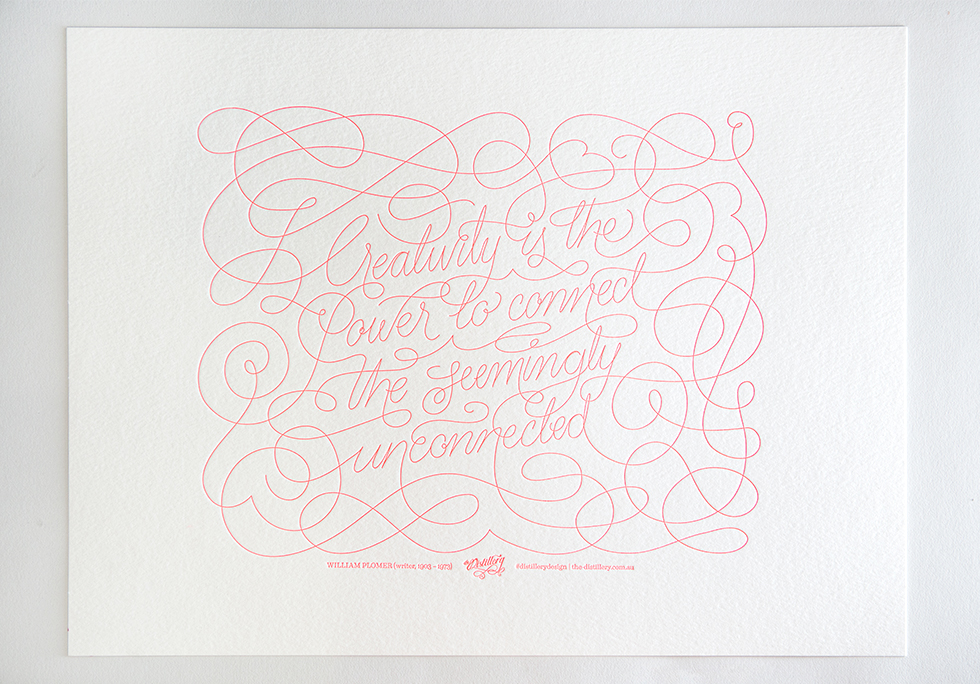 Creativity is the
Power to connect
the seemingly
unconnected
WILLIAM PLOMER (writer, 1903 - 1973) the Distillery @distillerydesign | the-distillery.com.au